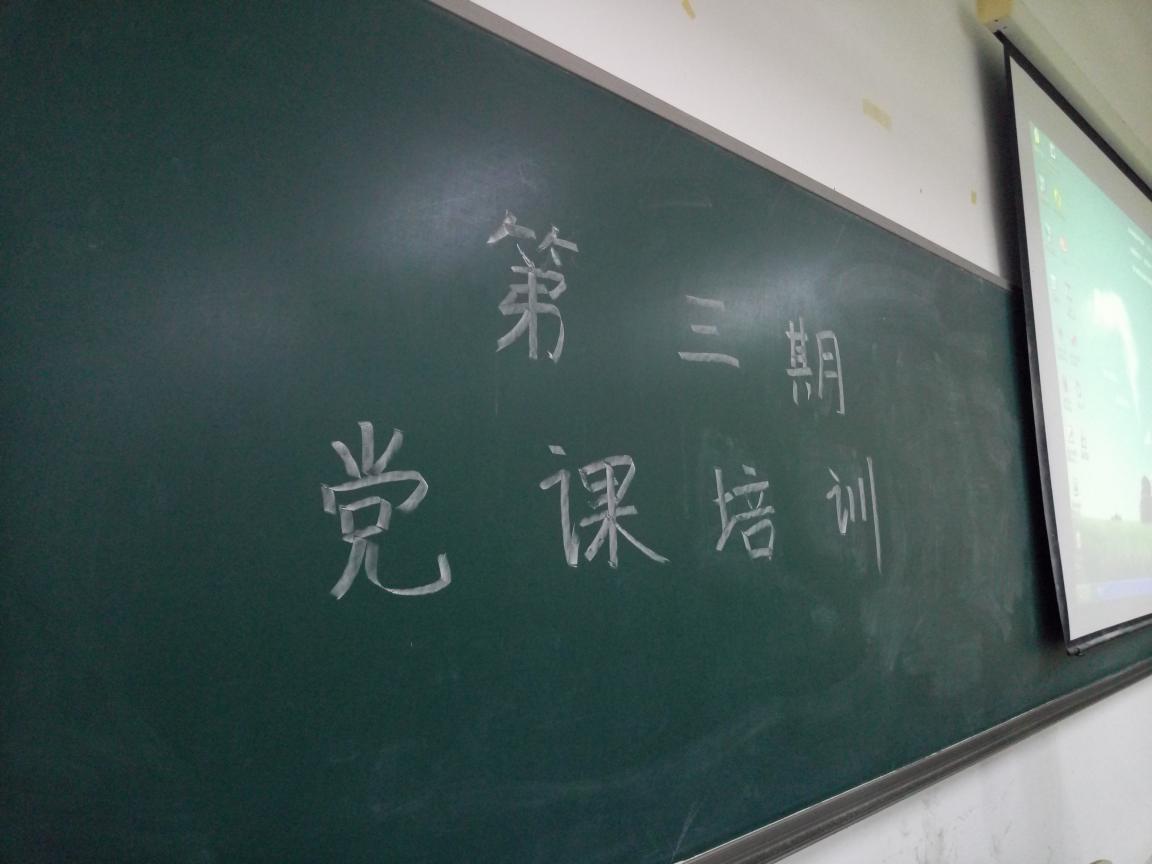 第三期
党课培训